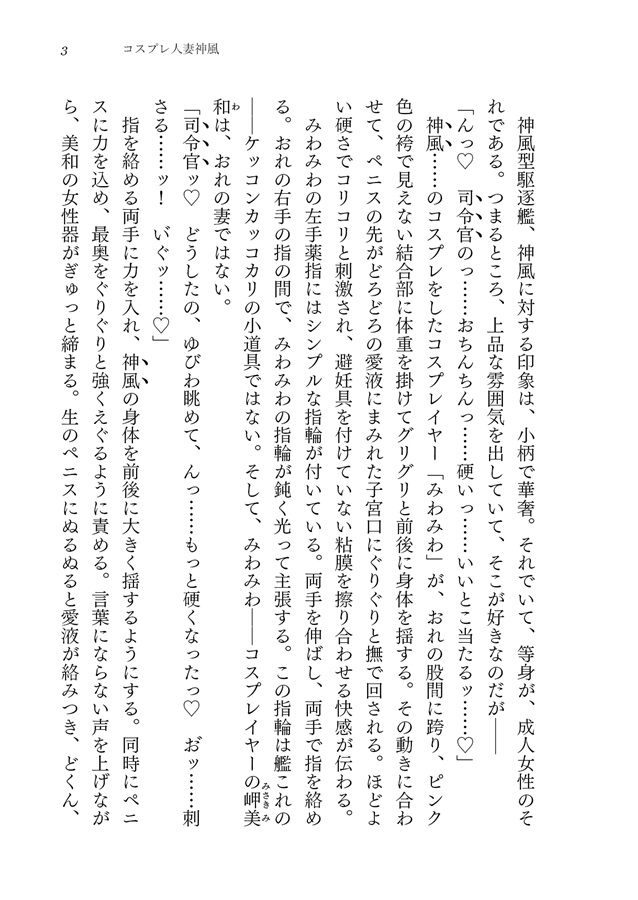 3
コスプレ人妻神風
神風型駆逐艦、神風に対する印象は、小柄で華奢。それでいて、等身が、成人女性のそ
れである。つまるところ、上品な雰囲気を出していて、そこが好きなのだが――
「んっ♡　司令官のっ……おちんちんっ……硬いっ……いいとこ当たるッ……♡」
神風……のコスプレをしたコスプレイヤー「みわみわ」が、おれの股間に跨り、ピンク
色の袴で見えない結合部に体重を掛けてグリグリと前後に身体を揺する。その動きに合わ
せて、ペニスの先がどろどろの愛液にまみれた子宮口にぐりぐりと撫で回される。ほどよ
い硬さでコリコリと刺激され、避妊具を付けていない粘膜を擦り合わせる快感が伝わる。
みわみわの左手薬指にはシンプルな指輪が付いている。両手を伸ばし、両手で指を絡め
る。おれの右手の指の間で、みわみわの指輪が鈍く光って主張する。この指輪は艦これの
――ケッコンカッコカリの小道具ではない。そして、みわみわ――コスプレイヤーの岬美
みさきみ
和は、おれの妻ではない。
わ
「司令官ッ♡　どうしたの、ゆびわ眺めて、んっ……もっと硬くなったっ♡　お゛ッ……刺
さる……ッ！　い゛ぐッ……♡」
指を絡める両手に力を入れ、神風の身体を前後に大きく揺するようにする。同時にペニ
スに力を込め、最奥をぐりぐりと強くえぐるように責める。言葉にならない声を上げなが
ら、美和の女性器がぎゅっと締まる。生のペニスにぬるぬると愛液が絡みつき、どくん、